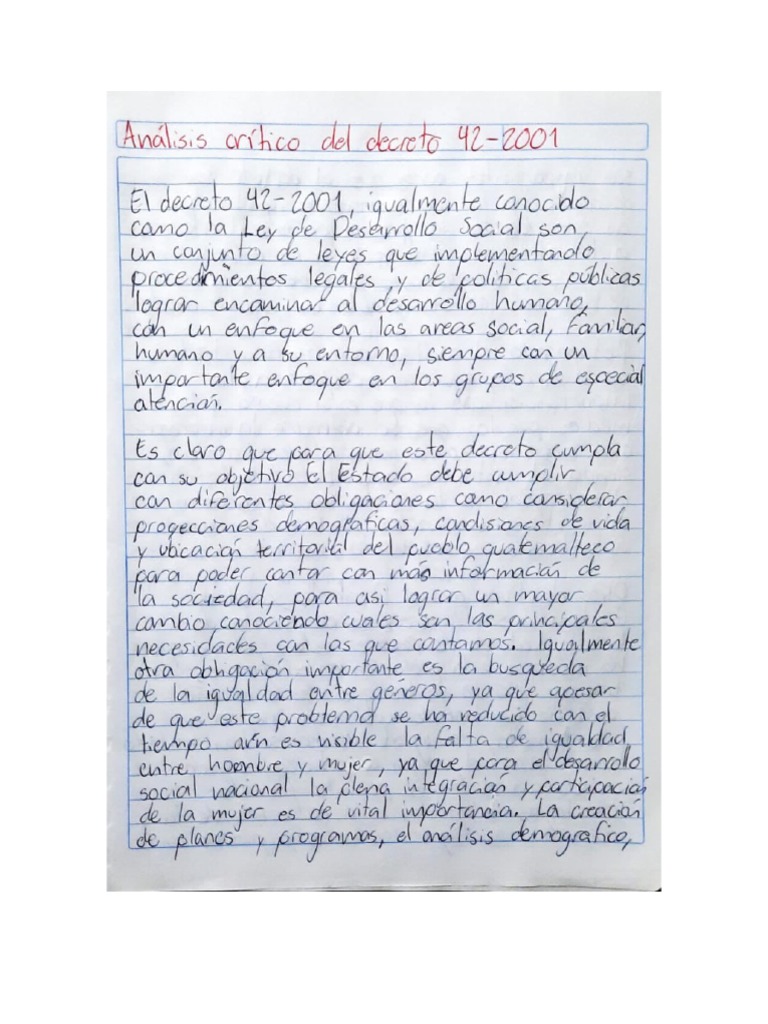 Análisis crítico del decreto 42-2001
El decreto 42-2001, igualmente conocido
como la Ley de Desarrollo Social son,
un conjunto de leyes que implementando
procedimientos legales y de politicas públicas
lograr encaminar al desarrollo humano,
con un enfoque en las areas social, familiar,
humano y a su entorno, siempre con un
importante enfoque en los grupos de especial
atención.
Es claro que para que este decreto cumpla
con su objetivo El Estado debe cumplir
con diferentes obligaciones como considerar
proyecciones demograficas, condisiones de vida
y ubicación territorial del pueblo guatemalteco
para poder contar con más información de
la sociedad, para asi lograr un mayor
cambio conociendo cuales son las principales
necesidades con las que contamos. Igualmente
otra obligación importante es la busqueda
de la igualdad entre géneros, ya que apesar
de que este problema se ha reducido con el
tiempo aún es visible la falta de igualdad
entre hombre y mujer, ya que para el desarrollo
social nacional la plena integración y participación
de la mujer es de vital importancia. La creación
de planes y programas, el análisis demografico,